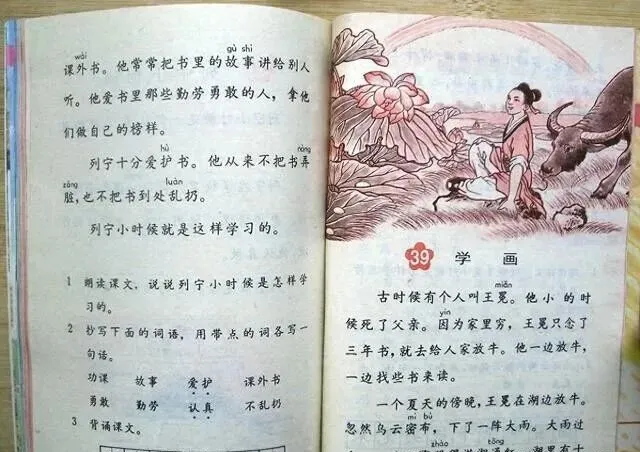 wài gù shi
课外书。他常常把书里的故事讲给别人
听。他爱书里那些勤劳勇敢的人，拿他
们做自己的榜样。
hù nòng
列宁十分爱护书。他从来不把书弄
zāng luàn
脏，也不把书到处乱扔。
列宁小时候就是这样学习的。
1 朗读课文，说说列宁小时候是怎样学
习的。
2 抄写下面的词语，用带点的词各写一
句话。
功课 故事 爱护 课外书
勇敢 勤劳 认真 不乱扔
3 背诵课文。
39 学 画
miǎn
古时候有个人叫王冕。他小的时
yīn
候死了父亲。因为家里穷，王冕只念了
三年书，就去给人家放牛。他一边放牛，
一边找些书来读。
一个夏天的傍晚，王冕在湖边放牛。
mì bù
忽然乌云密布，下了一阵大雨。大雨过
zhào tōng